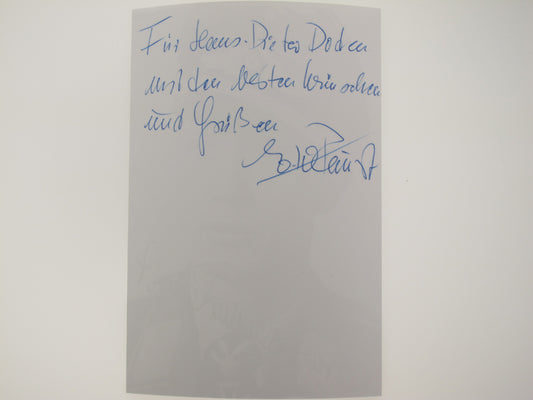 Für Hans-Dieter Doden
mit den besten Wünschen
und Grüßen